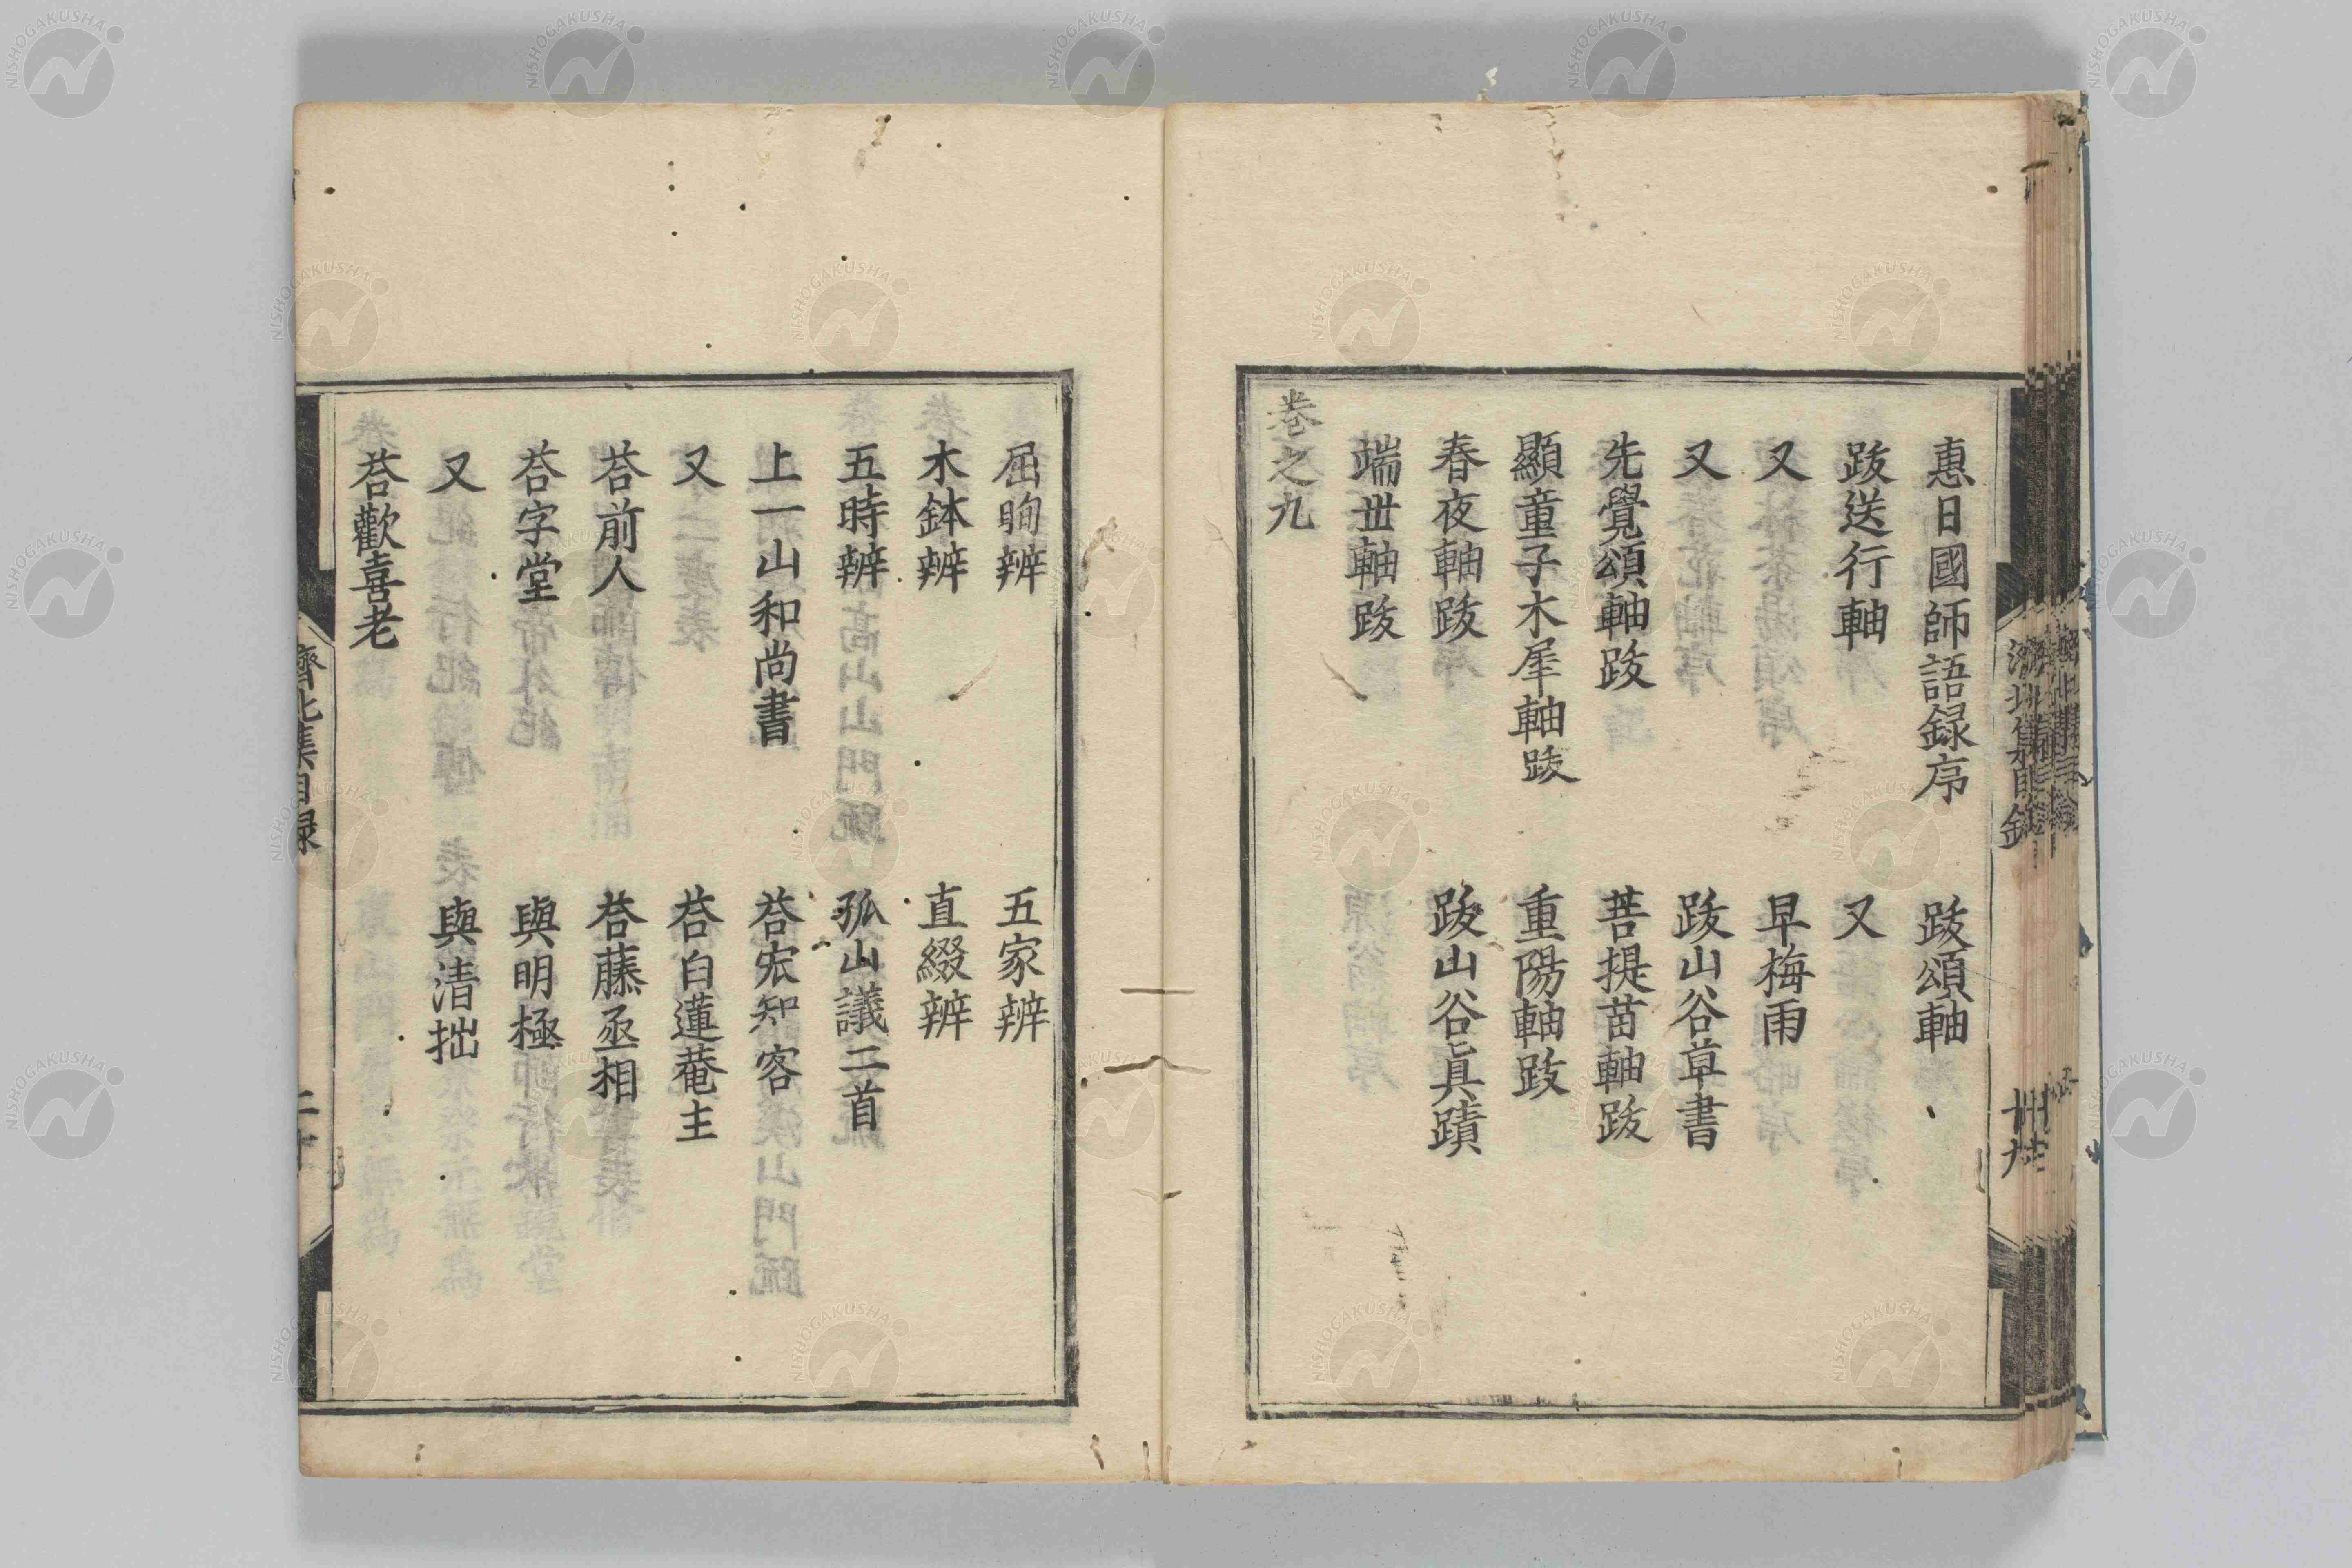 惠日國師語録序　跋頌軸
跋送行軸　又
又　早梅雨
又　跋山谷草書
先覺頌軸跋　菩提苗軸跋
顯童子木犀軸跋　重陽軸跋
春夜軸跋　跋山谷真蹟
端世軸跋
卷之九
屈眴辨　五家辨
木鉢辨　直綴辨
五時辨　孤山議二首
上一山和尚書　荅宏知客
又　荅白蓮菴主
荅前人　荅藤丞相
荅字堂　與明極
又　與清拙
荅歡喜老
濟北集目録
NISHOGAKUSHA